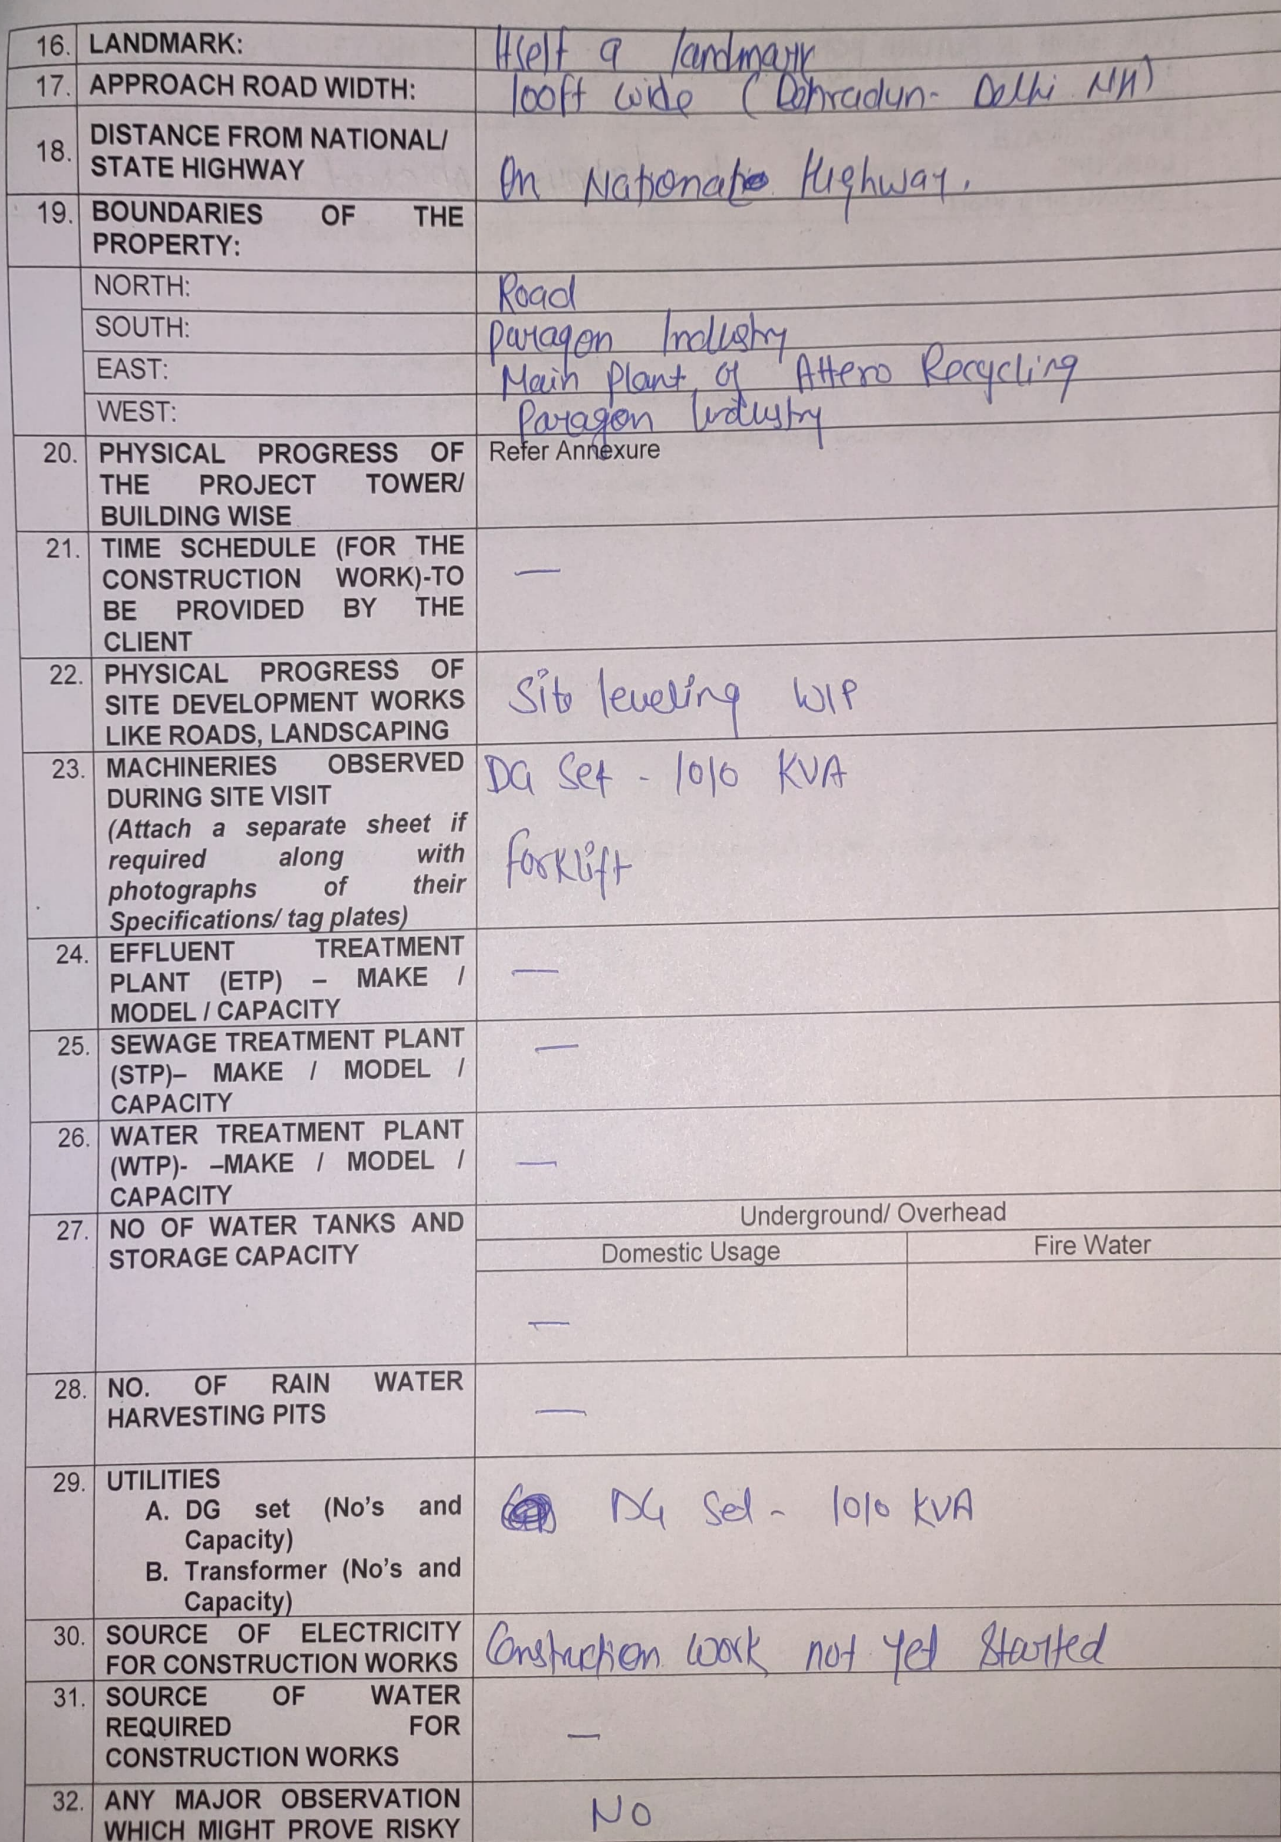 16. LANDMARK: Itself a landmark
17. APPROACH ROAD WIDTH: 100ft wide (Dehradun- Delhi NH)
18. DISTANCE FROM NATIONAL/
STATE HIGHWAY On National Highway.
19. BOUNDARIES OF THE
PROPERTY:
NORTH: Road
SOUTH: Paragon Industry
EAST: Main Plant of Attero Recycling
WEST: Paragon Industry
20. PHYSICAL PROGRESS OF Refer Annexure
THE PROJECT TOWER/
BUILDING WISE
21. TIME SCHEDULE (FOR THE
CONSTRUCTION WORK)-TO —
BE PROVIDED BY THE
CLIENT
22. PHYSICAL PROGRESS OF
SITE DEVELOPMENT WORKS Site leveling WIP
LIKE ROADS, LANDSCAPING
23. MACHINERIES OBSERVED DG Set - 1010 KVA
DURING SITE VISIT
(Attach a separate sheet if
required along with forklift
photographs of their
Specifications/ tag plates)
24. EFFLUENT TREATMENT
PLANT (ETP) – MAKE / —
MODEL / CAPACITY
25. SEWAGE TREATMENT PLANT —
(STP)– MAKE / MODEL /
CAPACITY
26. WATER TREATMENT PLANT
(WTP)- –MAKE / MODEL / —
CAPACITY
27. NO OF WATER TANKS AND Underground/ Overhead
STORAGE CAPACITY Domestic Usage Fire Water
—
28. NO. OF RAIN WATER
HARVESTING PITS —
29. UTILITIES
A. DG set (No's and DG Set - 1010 KVA
Capacity)
B. Transformer (No's and
Capacity)
30. SOURCE OF ELECTRICITY
FOR CONSTRUCTION WORKS Construction work not yet started
31. SOURCE OF WATER
REQUIRED FOR —
CONSTRUCTION WORKS
32. ANY MAJOR OBSERVATION No
WHICH MIGHT PROVE RISKY